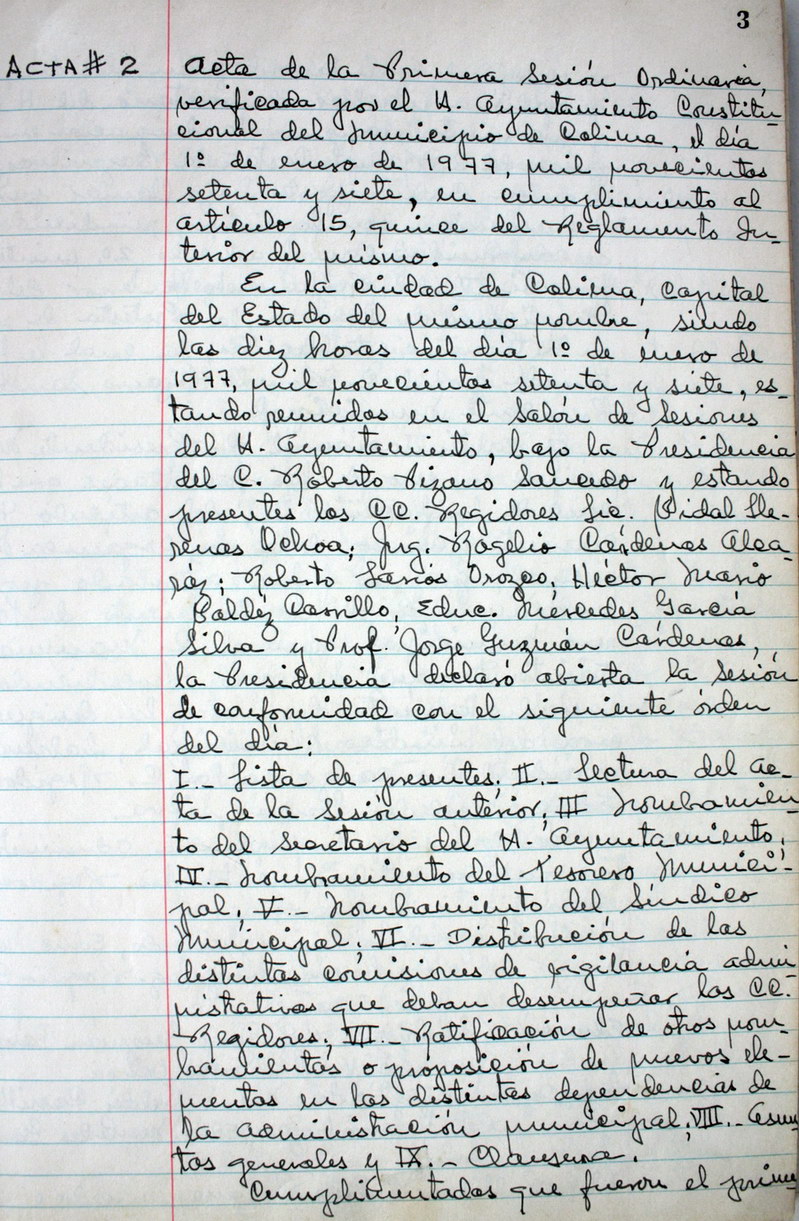 3
ACTA # 2 Acta de la Primera Sesión Ordinaria,
verificada por el H. Ayuntamiento Constitu-
cional del Municipio de Colima, el día
1º de enero de 1977, mil novecientos
setenta y siete, en cumplimiento al
artículo 15, quince del Reglamento In-
terior del mismo.
En la ciudad de Colima, capital
del Estado del mismo nombre, siendo
las diez horas del día 1º de enero de
1977, mil novecientos setenta y siete, es-
tando reunidos en el Salón de Sesiones
del H. Ayuntamiento, bajo la Presidencia
del C. Roberto Pizano Saucedo y estando
presentes los CC. Regidores Lic. Vidal Lle-
renas Ochoa; Ing. Rogelio Cárdenas Alca-
ráz; Roberto Larios Orozco, Héctor Mario
Valdéz Carrillo, Educ. Mercedes García
Silva y Prof. Jorge Guzmán Cárdenas,
la Presidencia declaró abierta la Sesión
de conformidad con el siguiente órden
del día:
I.- Lista de presentes; II.- Lectura del ac-
ta de la Sesión anterior; III Nombramien-
to del Secretario del H. Ayuntamiento,
IV.- Nombramiento del Tesorero Munici-
pal; V.- Nombramiento del Síndico
Municipal; VI.- Distribución de las
distintas comisiones de vigilancia admi-
nistrativas que deban desempeñar los CC.
Regidores; VII.- Ratificación de otros nom-
bramientos o proposición de nuevos ele-
mentos en las distintas dependencias de
la administración municipal; VIII.- Asun-
tos generales y IX.- Clausura.
Cumplimentados que fueron el prime